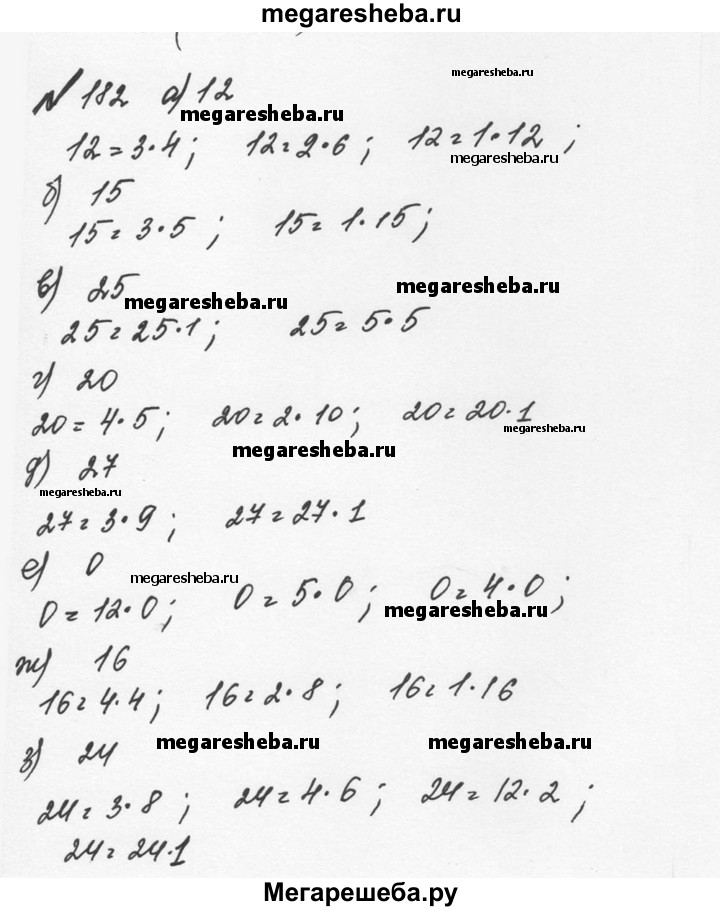 megaresheba.ru
№ 182 а) 12
megaresheba.ru
megaresheba.ru
12 = 3·4; 12 = 2·6; 12 = 1·12;
megaresheba.ru
б) 15
15 = 3·5; 15 = 1·15;
в) 25
megaresheba.ru
megaresheba.ru
25 = 25·1; 25 = 5·5
г) 20
20 = 4·5; 20 = 2·10; 20 = 20·1
megaresheba.ru
megaresheba.ru
д) 27
megaresheba.ru
27 = 3·9; 27 = 27·1
е) 0
megaresheba.ru
0 = 12·0; 0 = 5·0; 0 = 4·0;
megaresheba.ru
ж) 16
16 = 4·4; 16 = 2·8; 16 = 1·16
з) 24
megaresheba.ru
megaresheba.ru
24 = 3·8; 24 = 4·6; 24 = 12·2;
24 = 24·1
Мегарешеба.ру